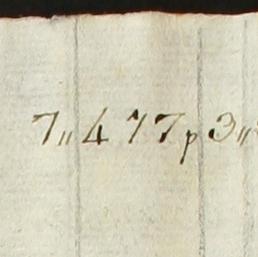 7„477p3„